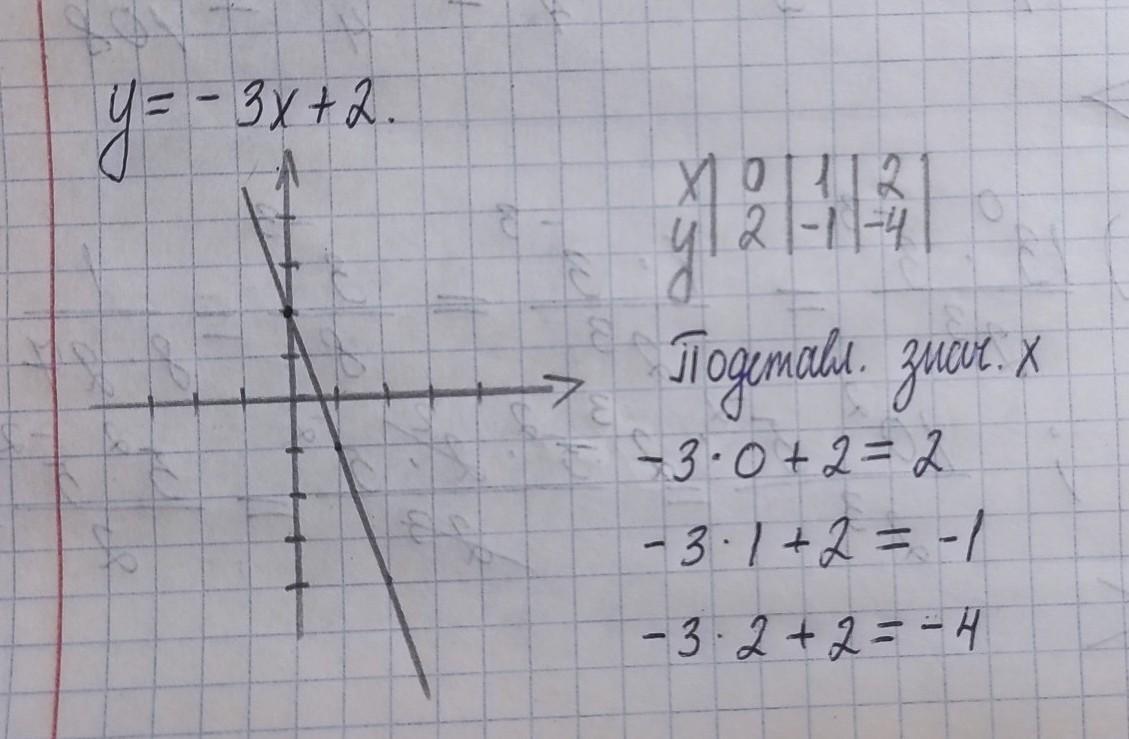 y = - 3x + 2.
x | 0 | 1 | 2 |
y | 2 | -1 | -4 |
Подставл. знач. x
-3 · 0 + 2 = 2
-3 · 1 + 2 = -1
-3 · 2 + 2 = -4